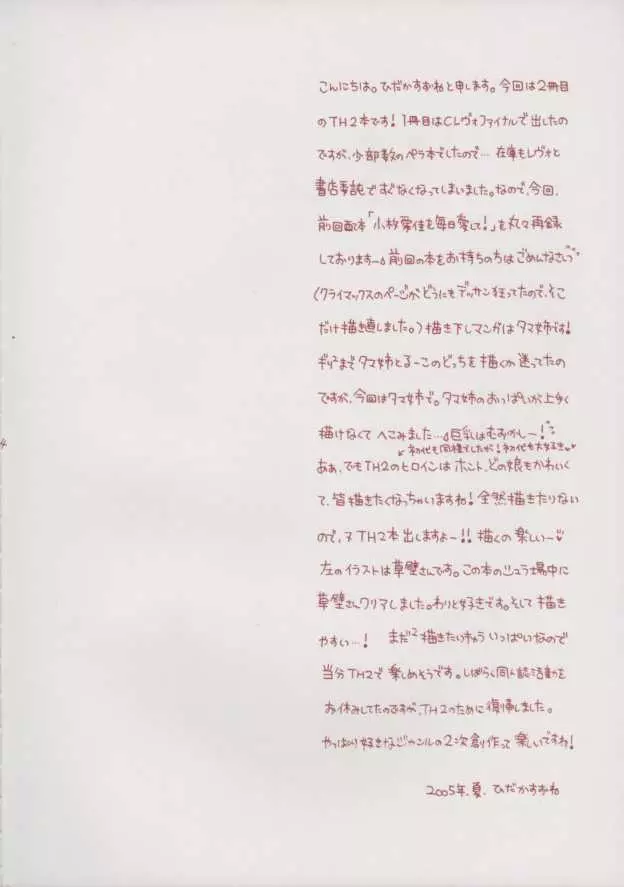 こんにちは。ひだかすずねと申します。今回は2冊目
のTH2本です！1冊目はCレヴォファイナルで出したの
ですが、少部数のペラ本でしたので… 在庫もレヴォと
書店委託ですぐなくなってしまいました。なので、今回、
前回配本「小牧愛佳を毎日愛して！」を丸々再録
しております〜。前回の本をお持ちの方はごめんなさいっ
(クライマックスのページがどうにもデッサン狂ってたので、そこ
だけ描き直しました。)描き下しマンガはタマ姉です！
ギリ²までタマ姉とるーこのどっちを描くか迷ってたの
ですが、今回はタマ姉で。タマ姉のおっぱいが上手く
描けなくてへこみました…。巨乳はむずかし〜！
初代も同様でしたが！初代も大好き♥
ああ、でもTH2のヒロインはホント、どの娘もかわいく
て、皆描きたくなっちゃいますね！全然描きたりない
ので、又TH2本出しますよ〜!!描くの楽しい〜♥
左のイラストは草壁さんです。この本のシュラ場中に
草壁さんクリアしました。わりと好きです。そして描き
やすい…！ まだ²描きたいキャラいっぱいなので
当分TH2で楽しめそうです。しばらく同人誌活動を
お休みしてたのですが、TH2のために復帰しました。
やっぱり好きなジャンルの2次創作って楽しいですね！
2005年.夏. ひだかすずね